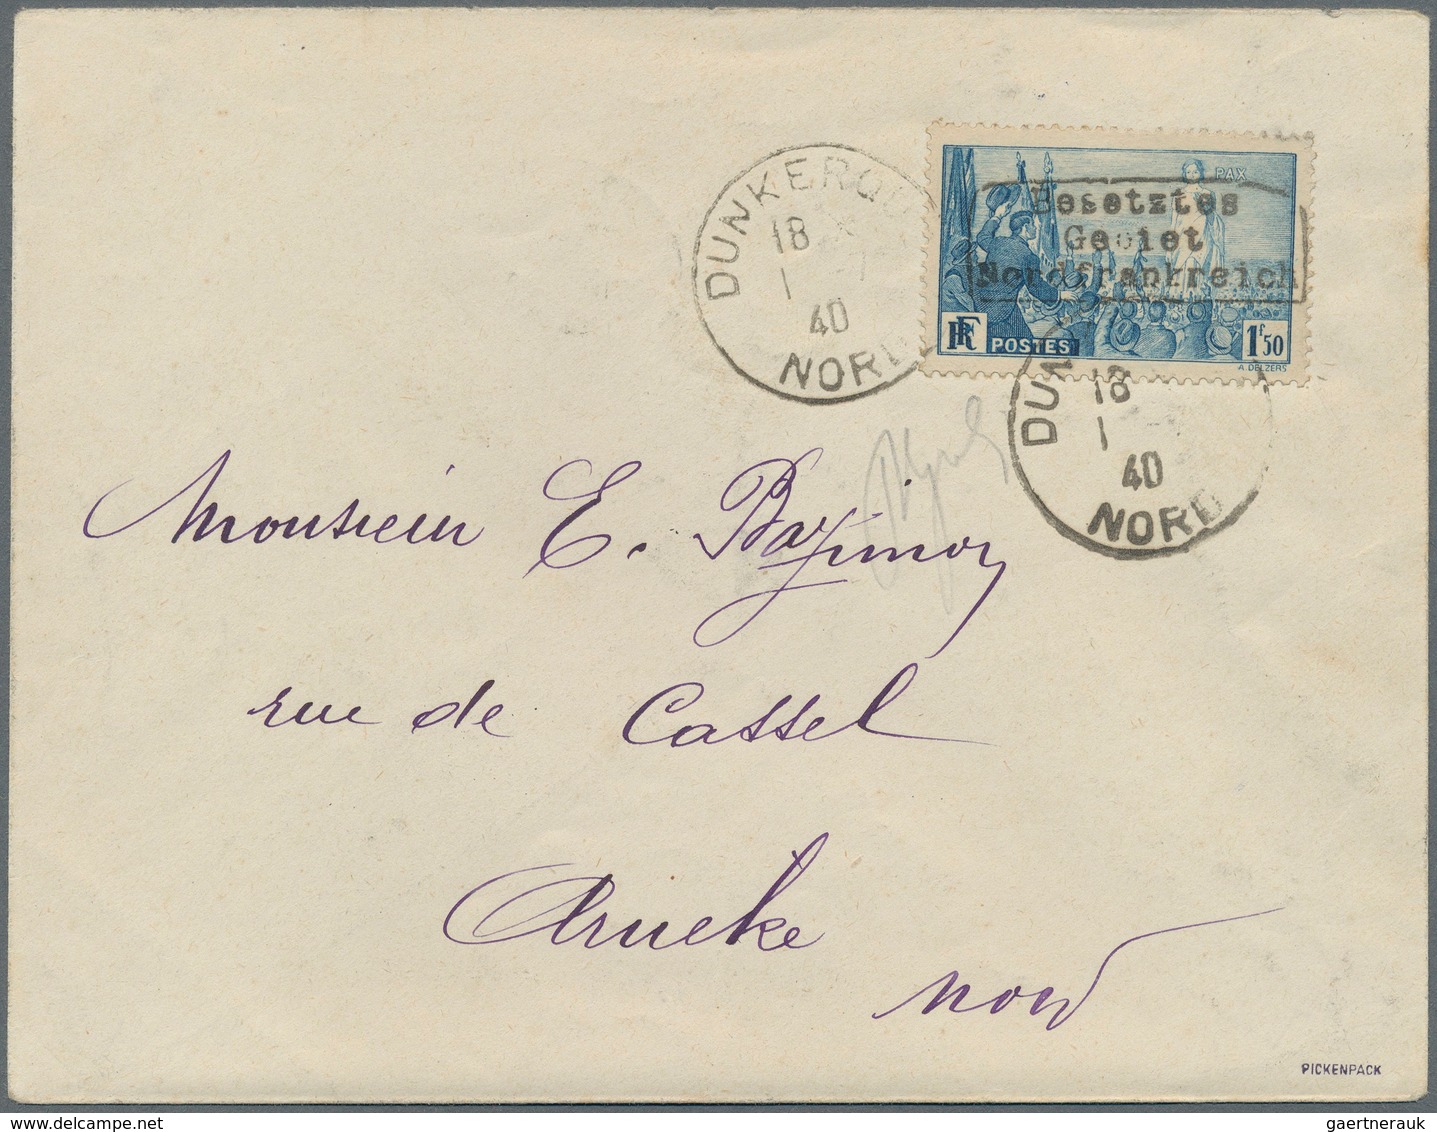 DUNKERQU
18
1
40
NORD
PAX
Besetztes
Gebiet
Nordfrankreich
RF
POSTES
1f50
A. DELZERS
DUN
18
1
40
NORD
Monsieur E.
rue de Cassel
Arneke
Nord
PICKENPACK
gaertnerauk